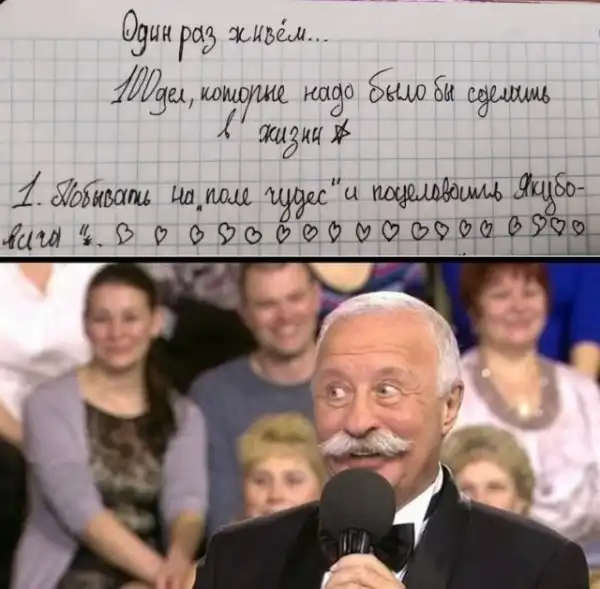 Один раз живём...
100 дел, которые надо было бы сделать
в жизни
1. Побывать на „поле чудес“ и поцеловать Якубо-
вича